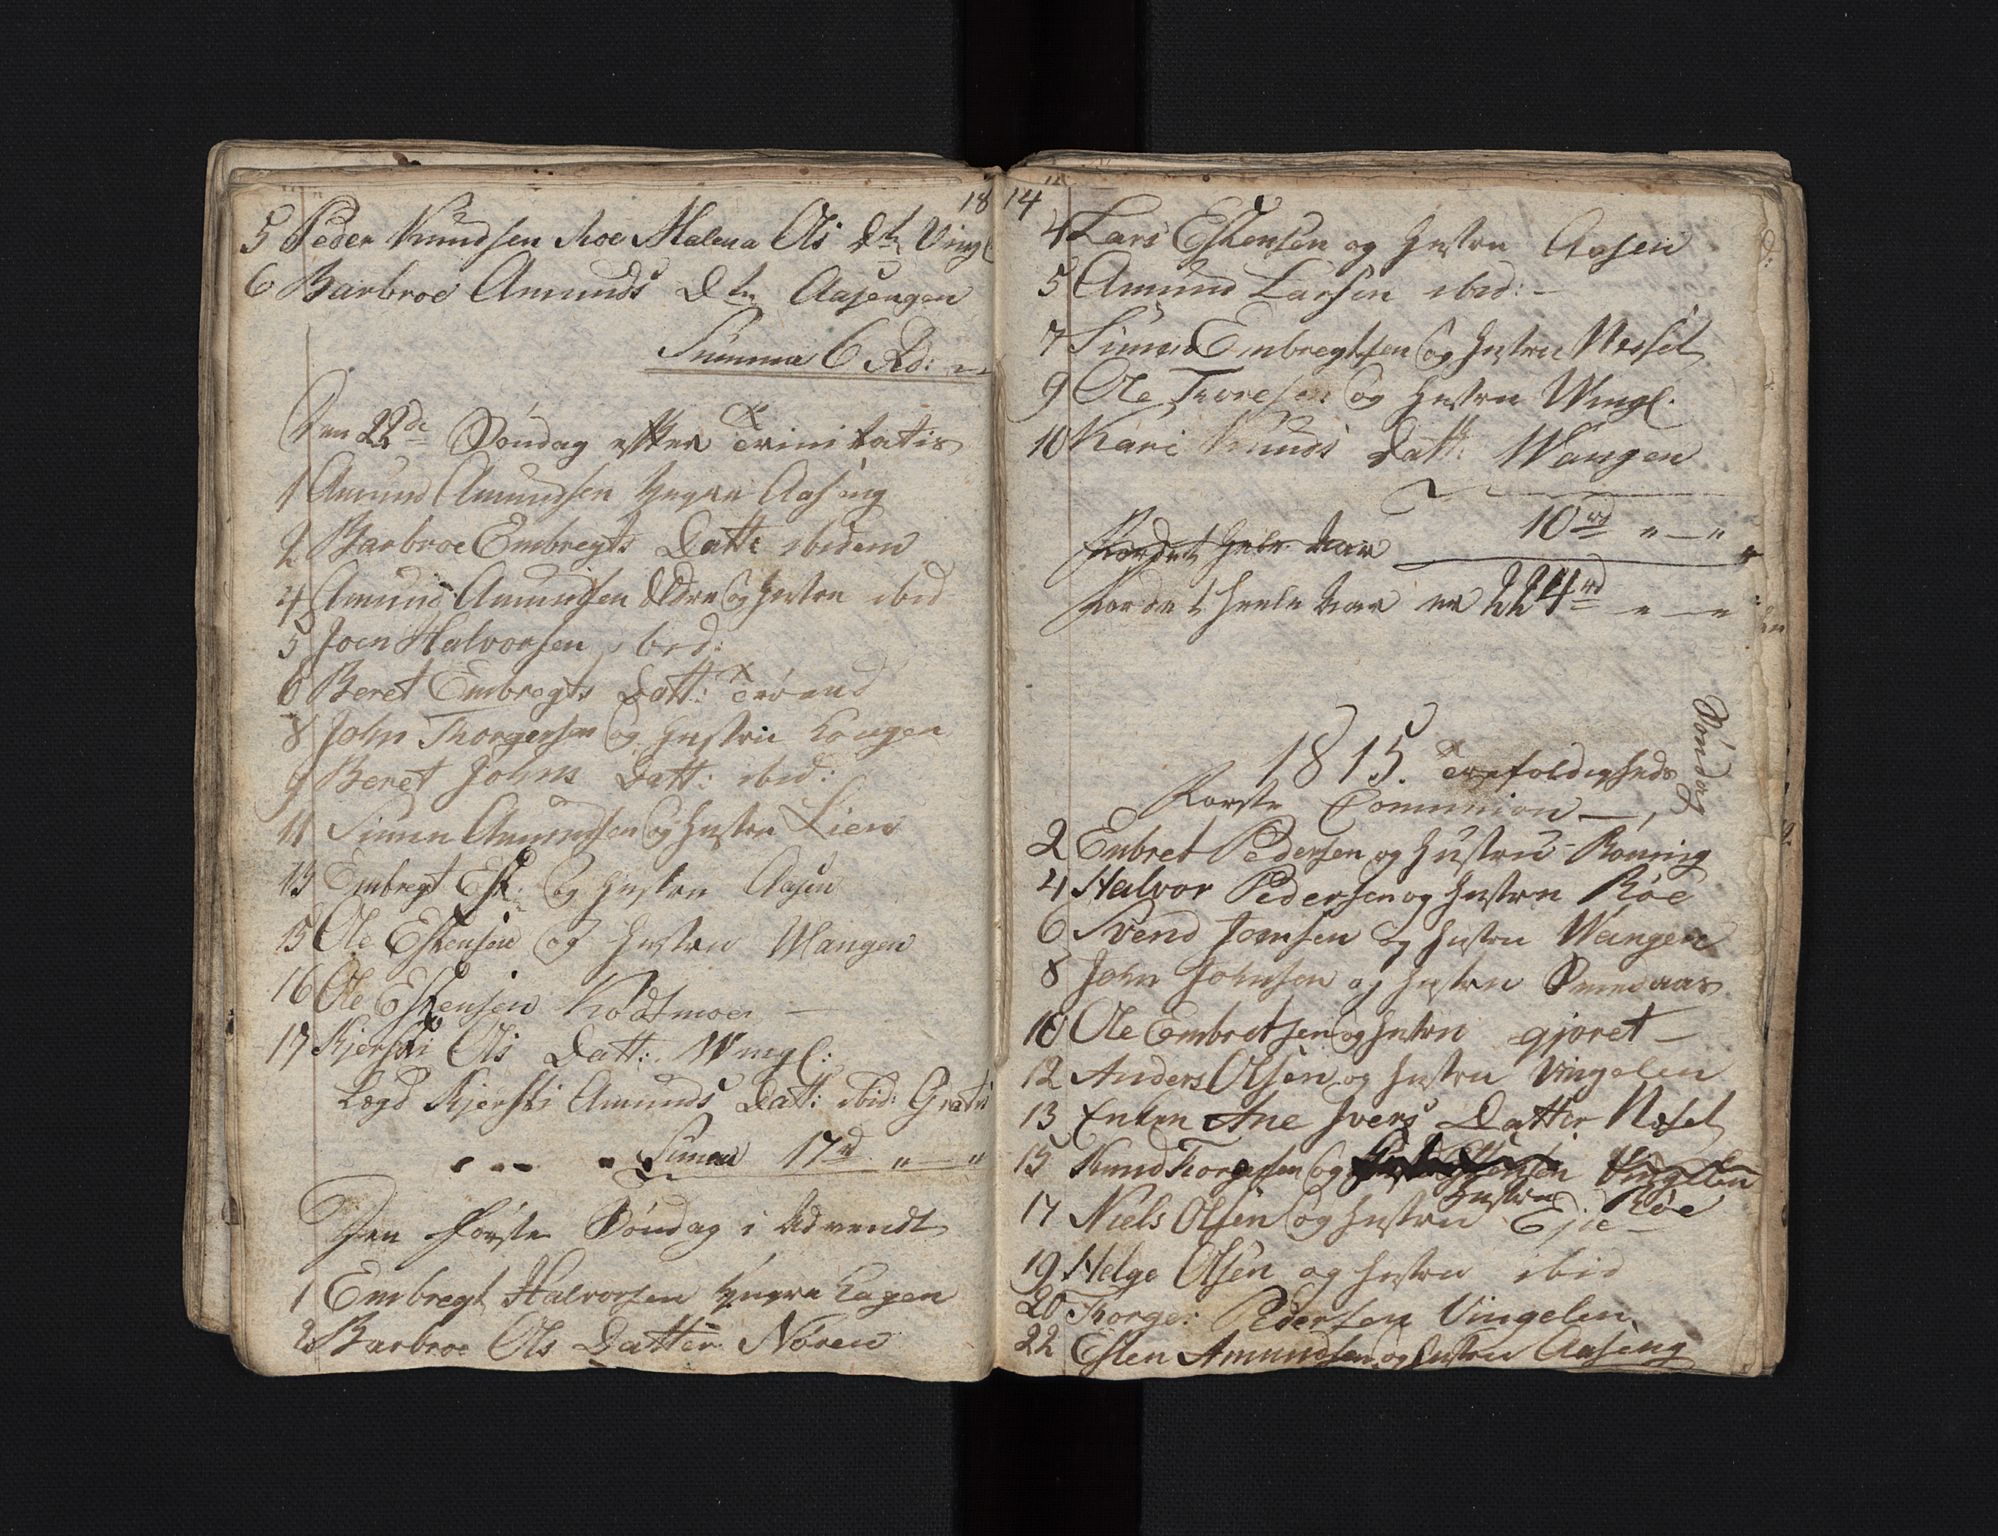 18
5 Peder Knudsen Roe Malena Ols Dtr Vingl
6 Barbroe Amunds Dtr Aasengen
Summa 6 Rd:
Den 22de Söndag efter Trinitatis
1 Amund Amundsen yngre Aaseng
2 Barbroe Embregts Datt ibidem
4 Amund Amundsen Eldre og Hustru ibid
5 Joen Halvorsen ibid:
6 Beret Embregts Datt: Tröend
8 John Thorgersen og Hustru Hougen
9 Beret Johns Datt: ibid:
11 Simen Amundsen og Hustru Lien
13 Embregt Esk: og Hustru Aasen
15 Ole Eskensen og Hustru Wangen
16 Ole Eskensen Ködtmoen
17 Kjersti Ols Datt: Wingl:
Lægd Kjersti Amunds Datt: ibid: Gratis
Suma 17rd „ — „
Den Förste Söndag i Advendt
1 Embregt Halvorsen yngre Hagen
2 Barbroe Ols Datter Nören
14
4 Lars Eskensen og Hustru Aasen
5 Amund Larsen ibid: –
7 Simen Embregtsen og Hustru Nessel
9 Ole Thoresen og Hustru Wingl.
10 Kari Knuds Datt: Wangen
10rd „ — „
For det hele Aar
For det heele Aar er 224rd „ — „
1815. Trefoldigheds Söndag
Förste Communion –
2 Enbret Pedersen og Hustru Röning
4 Halvor Pedersen og Hustru Röe
6 Svend Joensen og Hustru Wangen
8 John Johnsen og Hustru Smedaas
10 Ole Embretsen og Hustru gjöret –
12 Anders Olsen og Hustru Vingelen
13 Enken Ane Ivers Datter Nesel
15 Knud Thorgersen og Vingelen
Hustru Röe
17 Niels Olsen og Hustru Ejde
19 Helge Olsen og Hustru ibid
20 Thorge: Pedersen Vingelen
22 Esten Amundsen og Hustru Aaseng